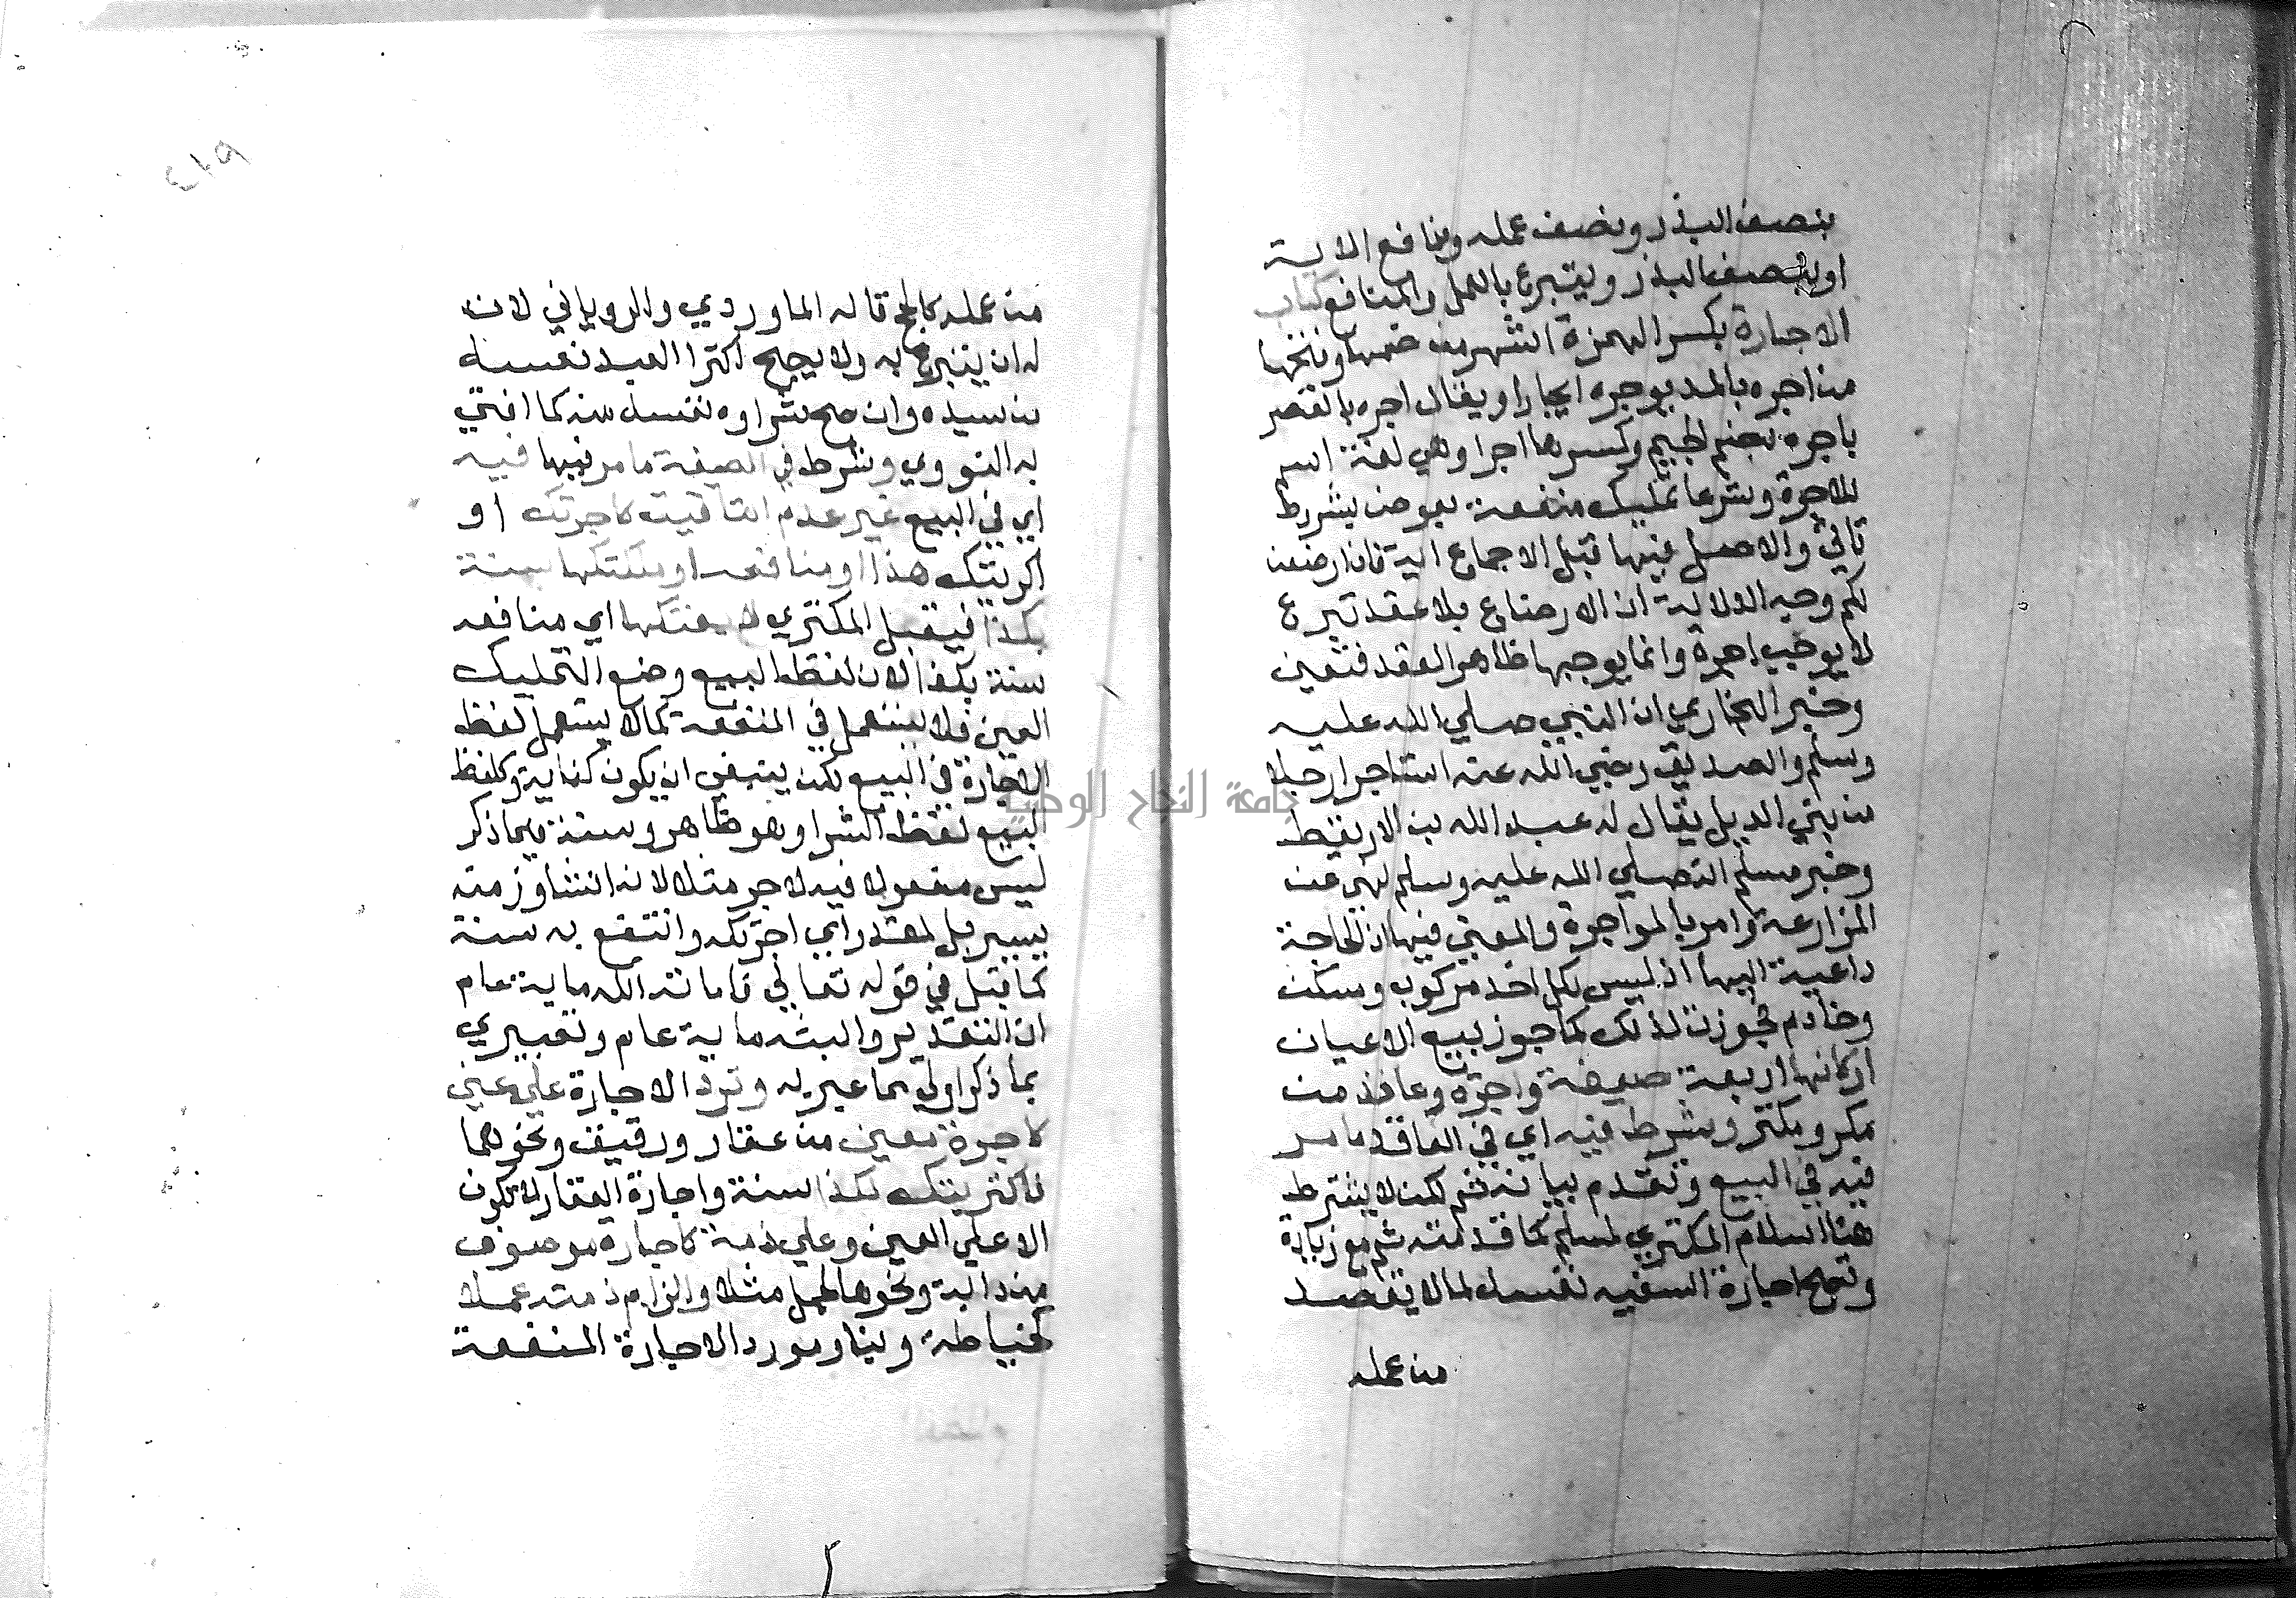 بنصف البذر ونصف عمله ومنافع الالية
او بنصف البذر ويتبرع بالعمل والمنافع كتاب
الاجارة بكسر الهمزة اشهر من ضمها وفتحها
من اجره بالمد يوجره ايجارا ويقال اجره بالقصر
ياجره بضم الجيم وكسرها اجرا وهي لغة اسم
للاجرة وشرعا تمليك منفعة بعوض بشروط
تاتي والاصل فيها قبل الاجماع اية فان ارضعن
لكم وجه الدلالة ان الارضاع بلا عقد تبرع
لا يوجب اجرة وانما يوجبها ظاهر العقد فتعين
وخبر البخاري ان النبي صلي الله عليه
وسلم والصديق رضي الله عنه استاجرا رجلا
من بني الديل يقال له عبد الله بن الاريقط
وخبر مسلم انه صلي الله عليه وسلم نهي عن
المزارعة وامر بالمواجرة والمعني فيها ان الحاجة
داعية اليها اذ ليس لكل احد مركوب ومسكن
وخادم فجوزت لذلك كما جوز بيع الاعيان
اركانها اربعة صيغة واجرة وعاقد من
مكر ومكتر وشرط فيه اي في العاقد ما مر
فيه في البيع وتقدم بيانه ثم لكن لا يشترط
هنا اسلام المكتري لمسلم كما قدمته ثم مع زيادة
وتصح اجارة السفيه نفسه لما لا يقصد
من عمله
٤١٩
من عمله كالحج قاله الماوردي والروياني لان
له ان يتبرع به ولا يصح اكترا العبد نفسه
من سيده وان صح شراوه نفسه منه كما افتي
به النووي وشرط في الصيغة ما مر فيها فيه
اي في البيع غير عدم التاقيت كاجرتك او
اكريتك هذا او منافعه او ملكتكها سنة
بكذا فيقبل المكتري لا بعتكها اي منافعه
سنة بكذا لان لفظ البيع وضع لتمليك
العين فلا يستعمل في المنفعة كما لا يستعمل لفظ
الاجارة في البيع لكن ينبغي ان يكون كناية وكلفظ
البيع لفظ الشرا وهو ظاهر وسنة فيما ذكر
ليس مفعولا فيه لاجر مثلا لانه انشا وزمنه
يسير بل لمقدر اي اجرتكه وانتفع به سنة
كما قيل في قوله تعالي فاماته الله ماية عام
ان التقدير والبثه ماية عام وتعبيري
بما ذكر اولي مما عبر به وترد الاجارة علي عين
كاجرة معين من عقار ورقيق ونحوهما
فاكتريتك بكذا سنة واجارة العقار لا تكون
الا علي العين وعلي ذمة كاجارة موصوف
من دابة ونحوها لحمل مثلا والزام ذمته عملا
كخياطة وبنا ومورد الاجارة المنفعة
جامعة النجاح الوطنية